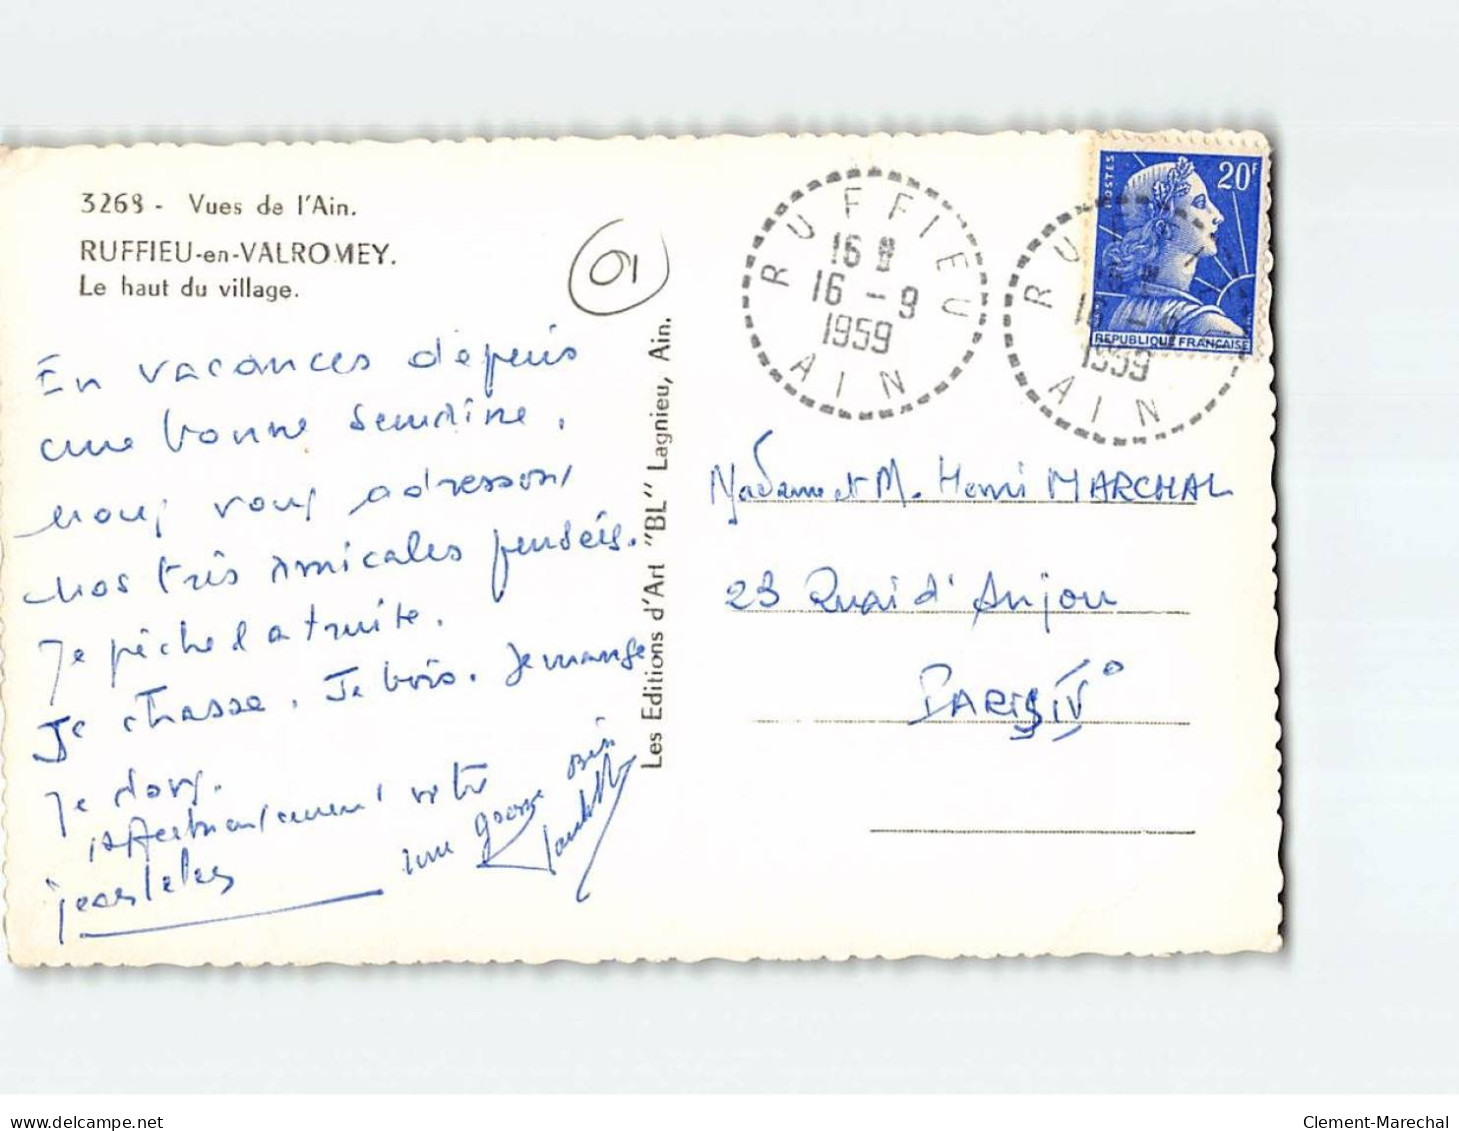 3268 - Vues de l'Ain.
RUFFIEU-en-VALROMEY.
Le haut du village.
01
En vacances depuis
une bonne semaine,
nous vous adressons
nos très amicales pensées.
Je pêche la truite.
Je chasse. Je bois. Je mange
Je dors.
Affectueusement votre
une grosse bise
Les Editions d'Art "BL" Lagnieu, Ain.
RUFFIEU
16 H
16 - 9
1959
AIN
RUFFIEU
16 - 9
1959
AIN
POSTES
20F
REPUBLIQUE FRANÇAISE
Madame et M. Henri MARCHAL
23 Quai d'Anjou
PARIS IV°
delcampe.net
Clement-Marechal